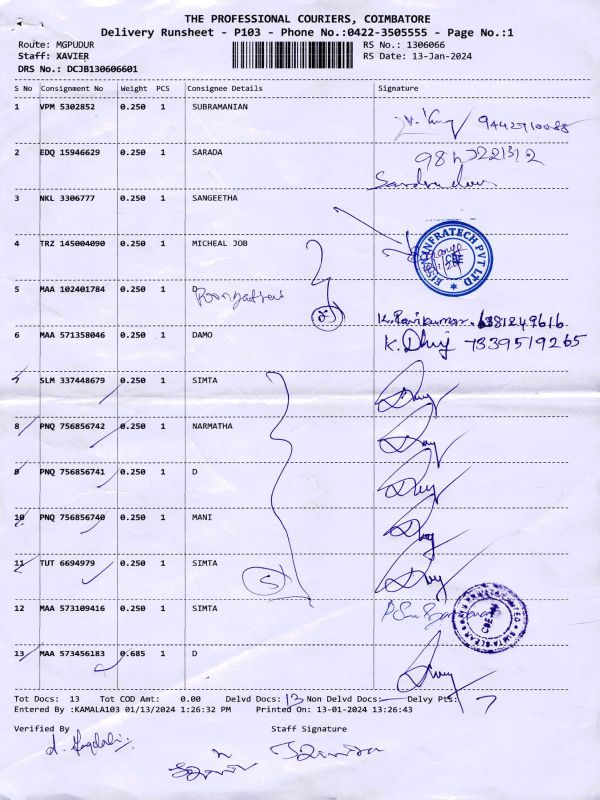 THE PROFESSIONAL COURIERS, COIMBATORE
Delivery Runsheet - P103 - Phone No.:0422-3505555 - Page No.:1
Route: MGPUDUR RS No.: 1306066
Staff: XAVIER RS Date: 13-Jan-2024
DRS No.: DCJB130606601
S No Consignment No Weight PCS Consignee Details Signature
1 VPM 5302852 0.250 1 SUBRAMANIAN
2 EDQ 15946629 0.250 1 SARADA
3 NKL 3306777 0.250 1 SANGEETHA
4 TRZ 145004090 0.250 1 MICHEAL JOB
5 MAA 102401784 0.250 1 D
6 MAA 571358046 0.250 1 DAMO K. Dhuj 7339519265
7 SLM 337448679 0.250 1 SIMTA
8 PNQ 756856742 0.250 1 NARMATHA
9 PNQ 756856741 0.250 1 D
10 PNQ 756856740 0.250 1 MANI
11 TUT 6694979 0.250 1 SIMTA
12 MAA 573109416 0.250 1 SIMTA
13 MAA 573456183 0.685 1 D
Tot Docs: 13 Tot COD Amt: 0.00 Delvd Docs: 13 Non Delvd Docs: Delvy Pts: 7
Entered By :KAMALA103 01/13/2024 1:26:32 PM Printed On: 13-01-2024 13:26:43
Verified By Staff Signature